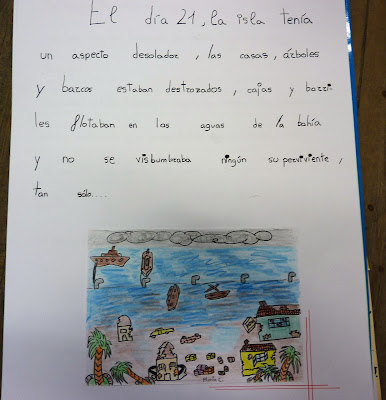 El día 21, la isla tenía
un aspecto desolador, las casas, árboles
y barcos estaban destrozados, cajas y barri-
les flotaban en las aguas de la bahía
y no se visbumbraba ningún superviviente,
tan sólo....
María C.